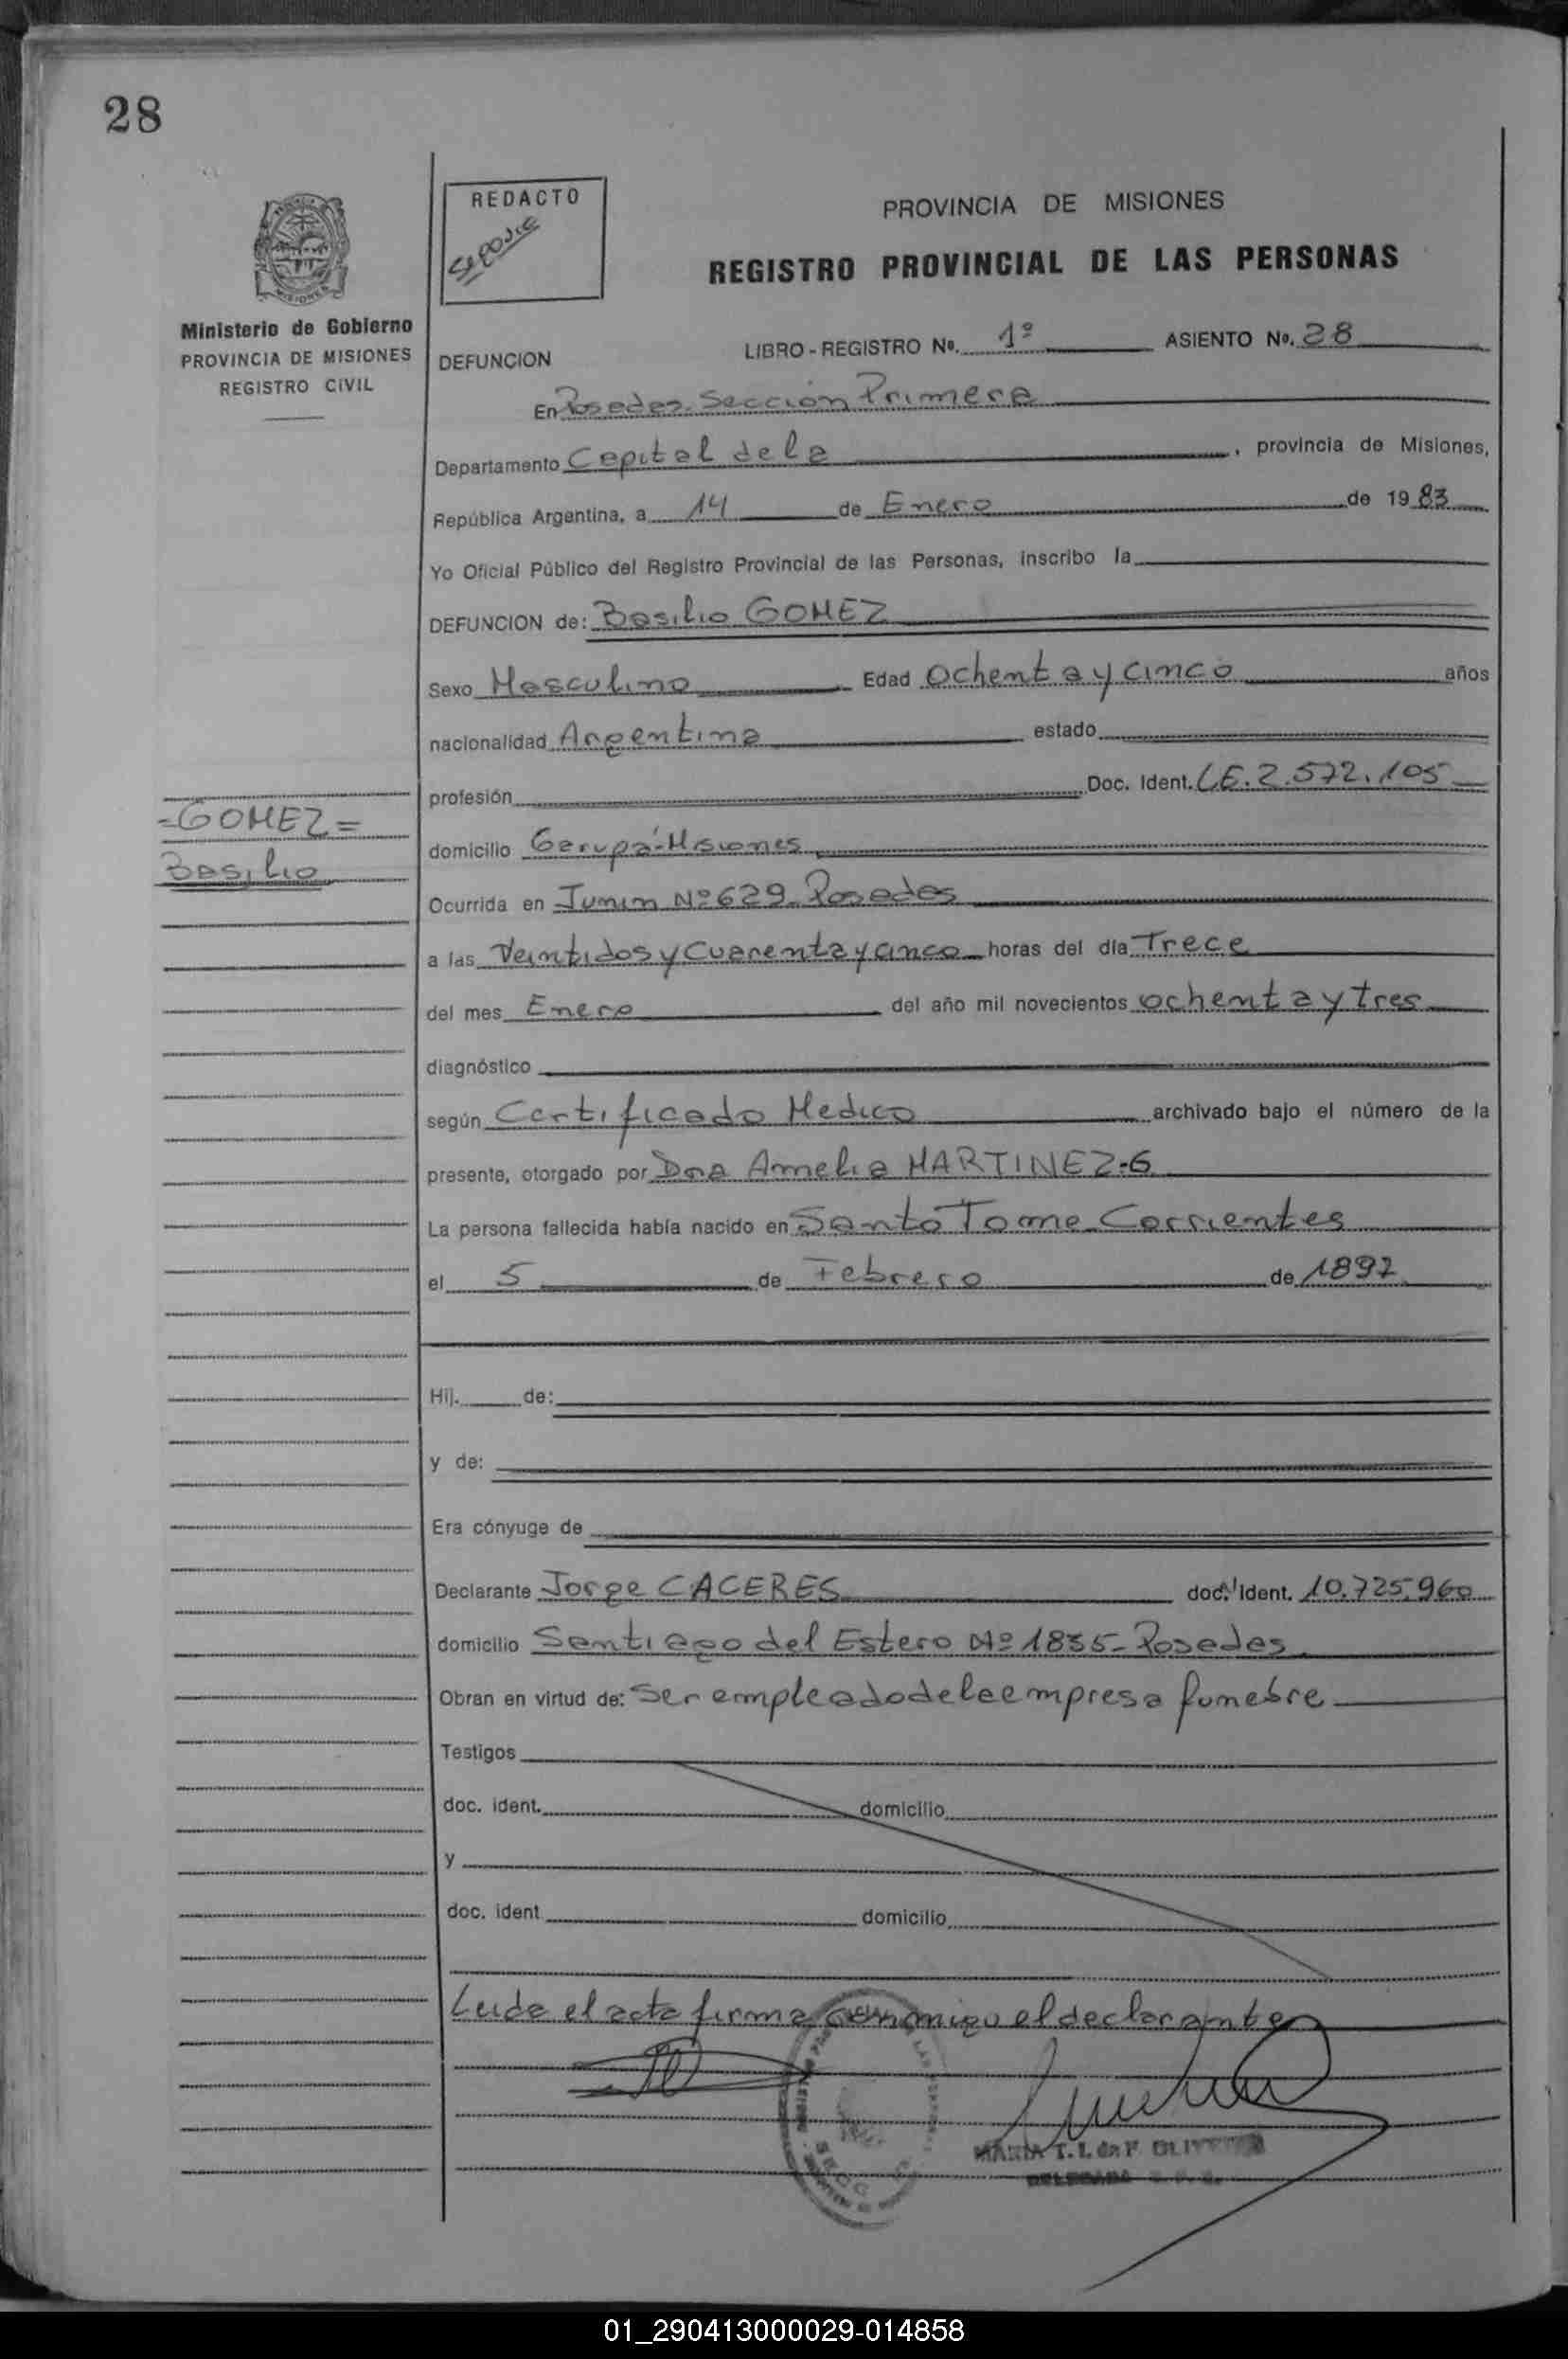 28
REDACTO
PROVINCIA DE MISIONES
REGISTRO PROVINCIAL DE LAS PERSONAS
Ministerio de Gobierno
PROVINCIA DE MISIONES
REGISTRO CIVIL
DEFUNCION LIBRO - REGISTRO No. 1º ASIENTO No. 28
En Posadas. Sección Primera
Departamento Capital de la, provincia de Misiones,
República Argentina, a 14 de Enero de 1983
Yo Oficial Público del Registro Provincial de las Personas, inscribo la
DEFUNCION de: Basilio GOMEZ
Sexo Masculino Edad Ochenta y cinco años
nacionalidad Argentina estado
profesión Doc. Ident. L.E. 2.572.105
=GOMEZ=
Basilio
domicilio Garupá-Misiones
Ocurrida en Junin Nº 629_Posadas
a las Veintidos y Cuarenta y cinco horas del día Trece
del mes Enero del año mil novecientos ochenta y tres
diagnóstico
según Certificado Medico archivado bajo el número de la
presente, otorgado por Dra Amelia MARTINEZ-G
La persona fallecida había nacido en Santo Tome_Corrientes
el 5 de Febrero de 1897
Hij. de:
y de:
Era cónyuge de
Declarante Jorge CACERES doc. Ident. 10.725.960
domicilio Santiago del Estero Nº 1835-Posadas
Obran en virtud de: Ser empleado de la empresa funebre
Testigos
doc. ident. domicilio
y
doc. ident domicilio
Leida el acta firma conmigo el declarante
MARIA T. I. de F. OLIVEIRA
DELEGADA
01_290413000029-014858